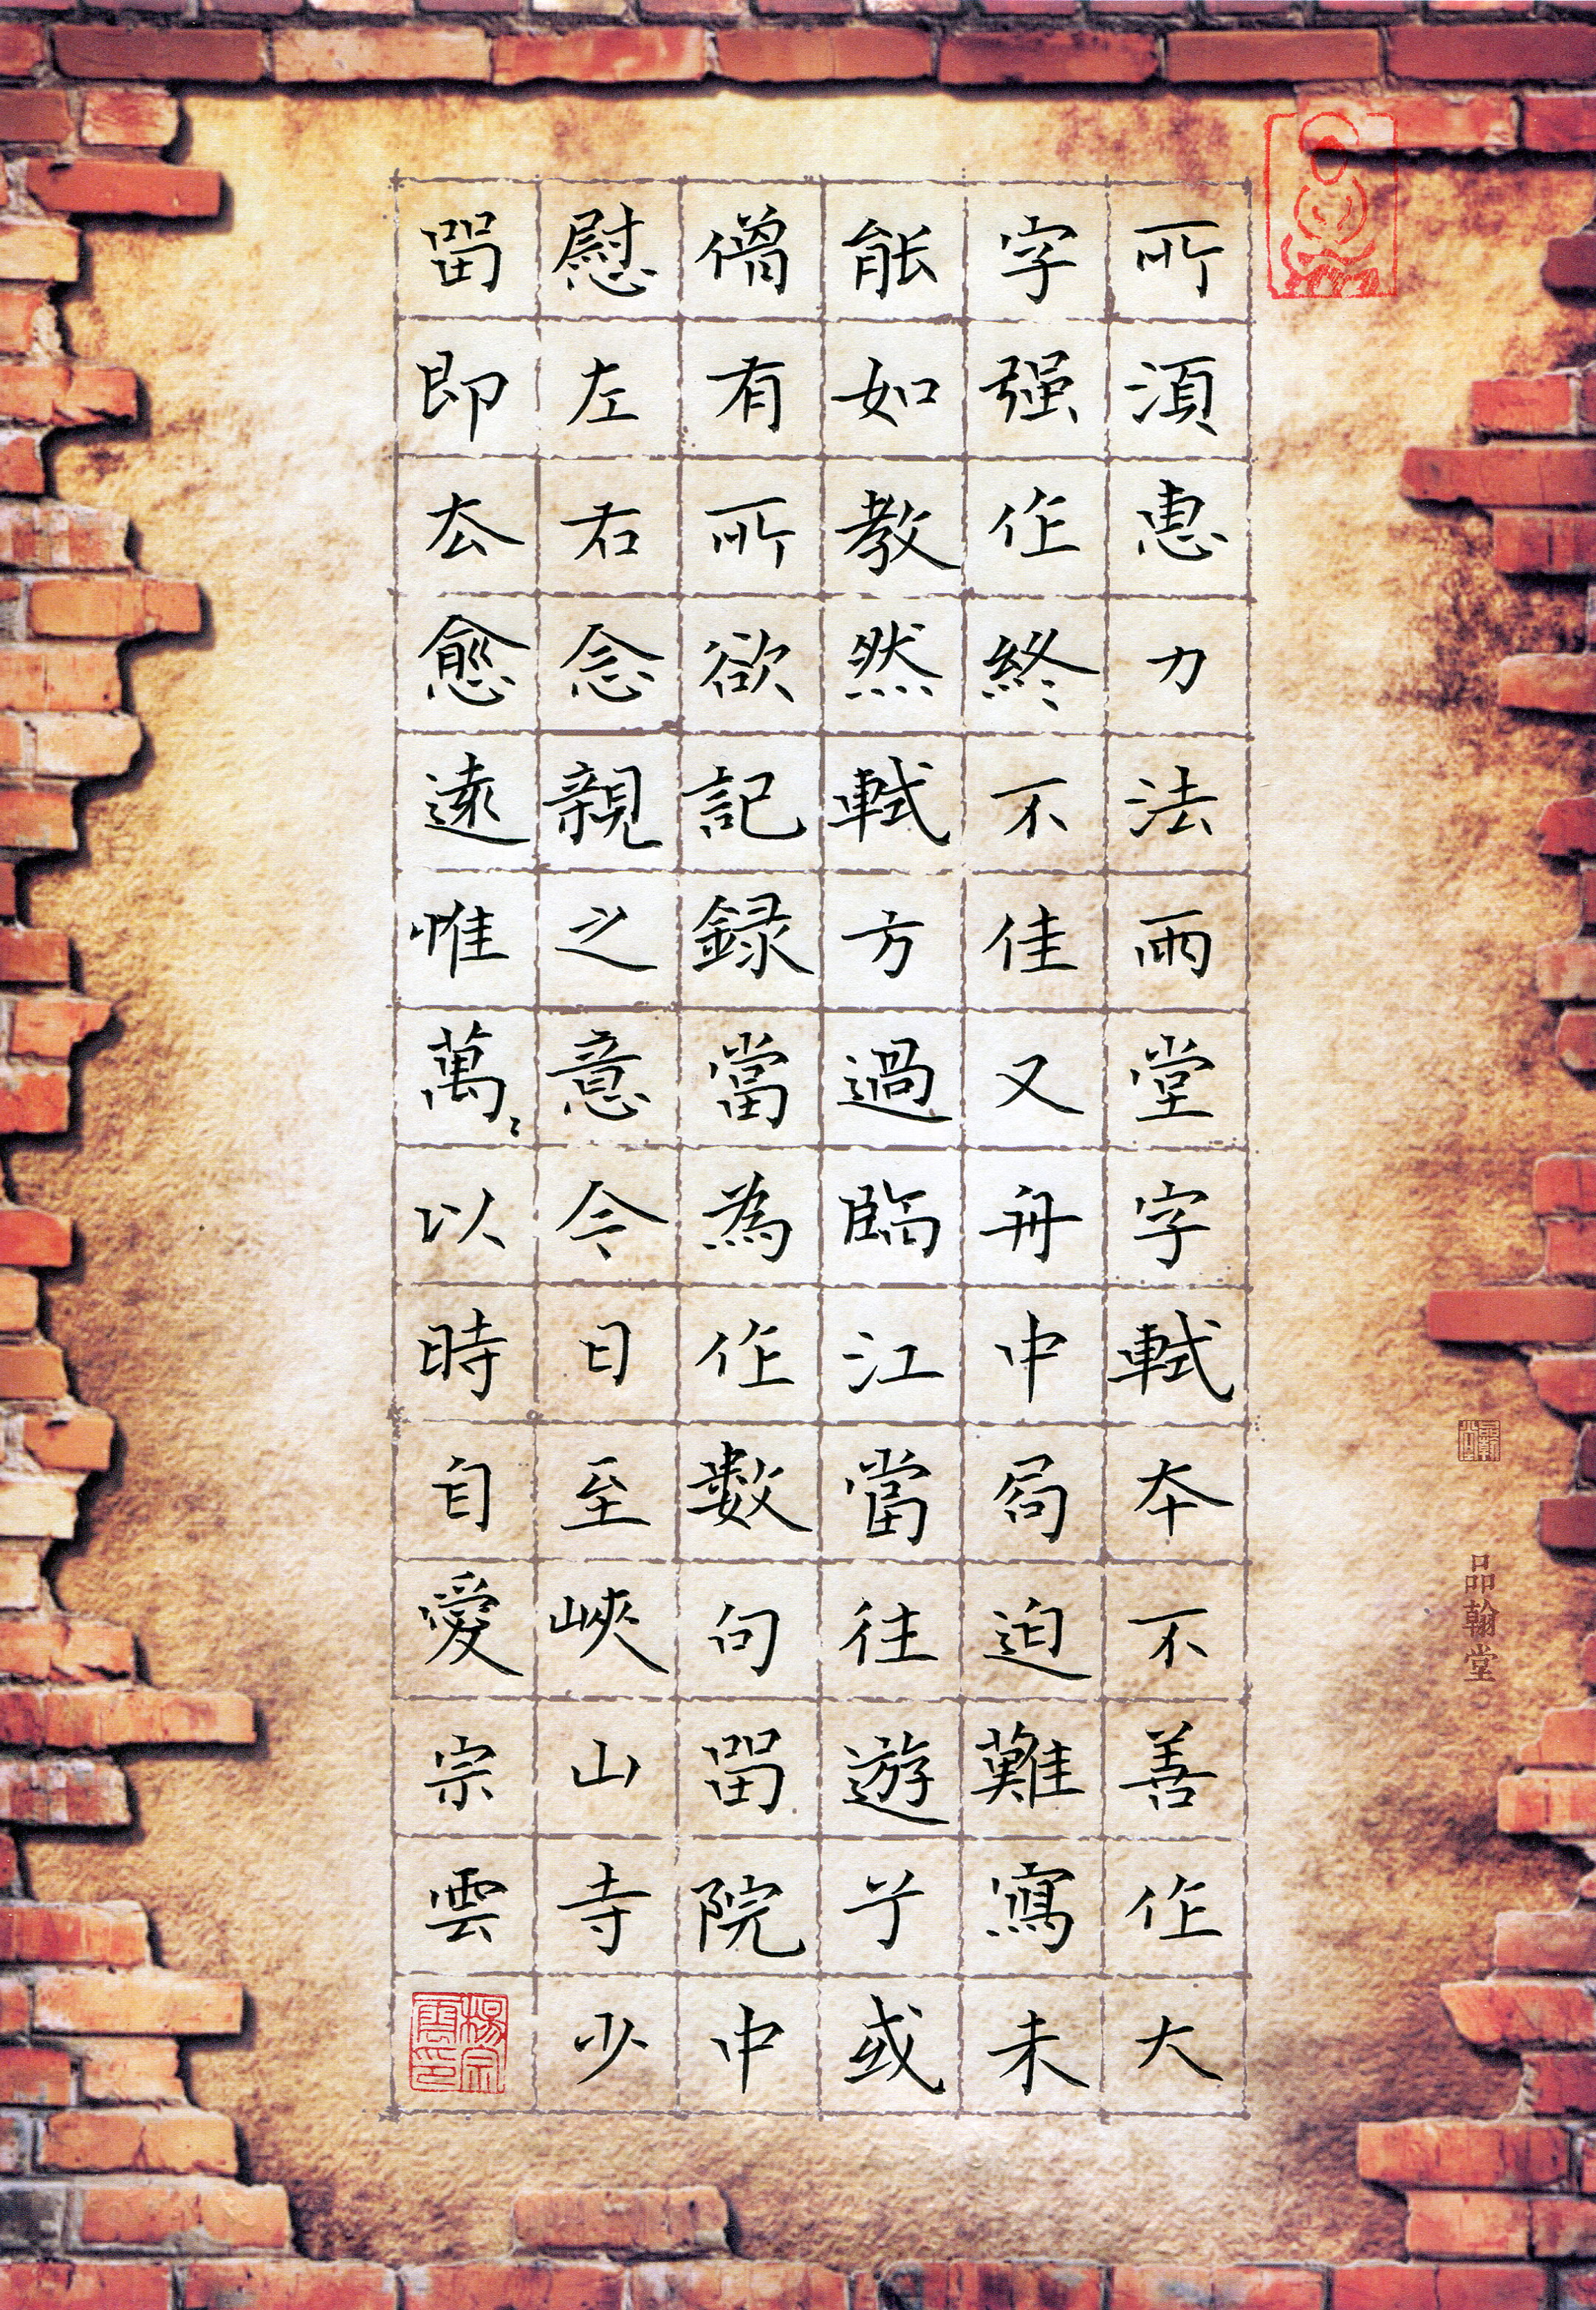 所須惠力法雨堂字軾本不善作大
字强作終不佳又舟中局迫難寫未
能如教然軾方過臨江當往遊兮或
僧有所欲記録當為作數句留院中
慰左右念親之意今日至峽山寺少
留即去愈遠惟萬〻以時自愛宗雲
楊宗雲印
品翰堂